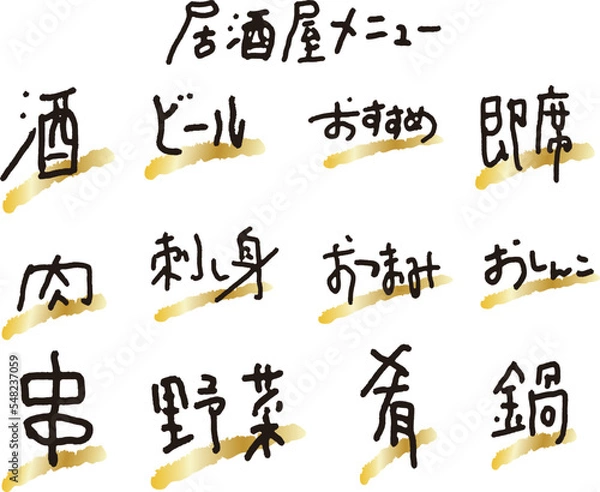 居酒屋メニュー
酒 ビール おすすめ 即席
肉 刺し身 おつまみ おしんこ
串 野菜 肴 鍋
Adobe Stock | #548237059